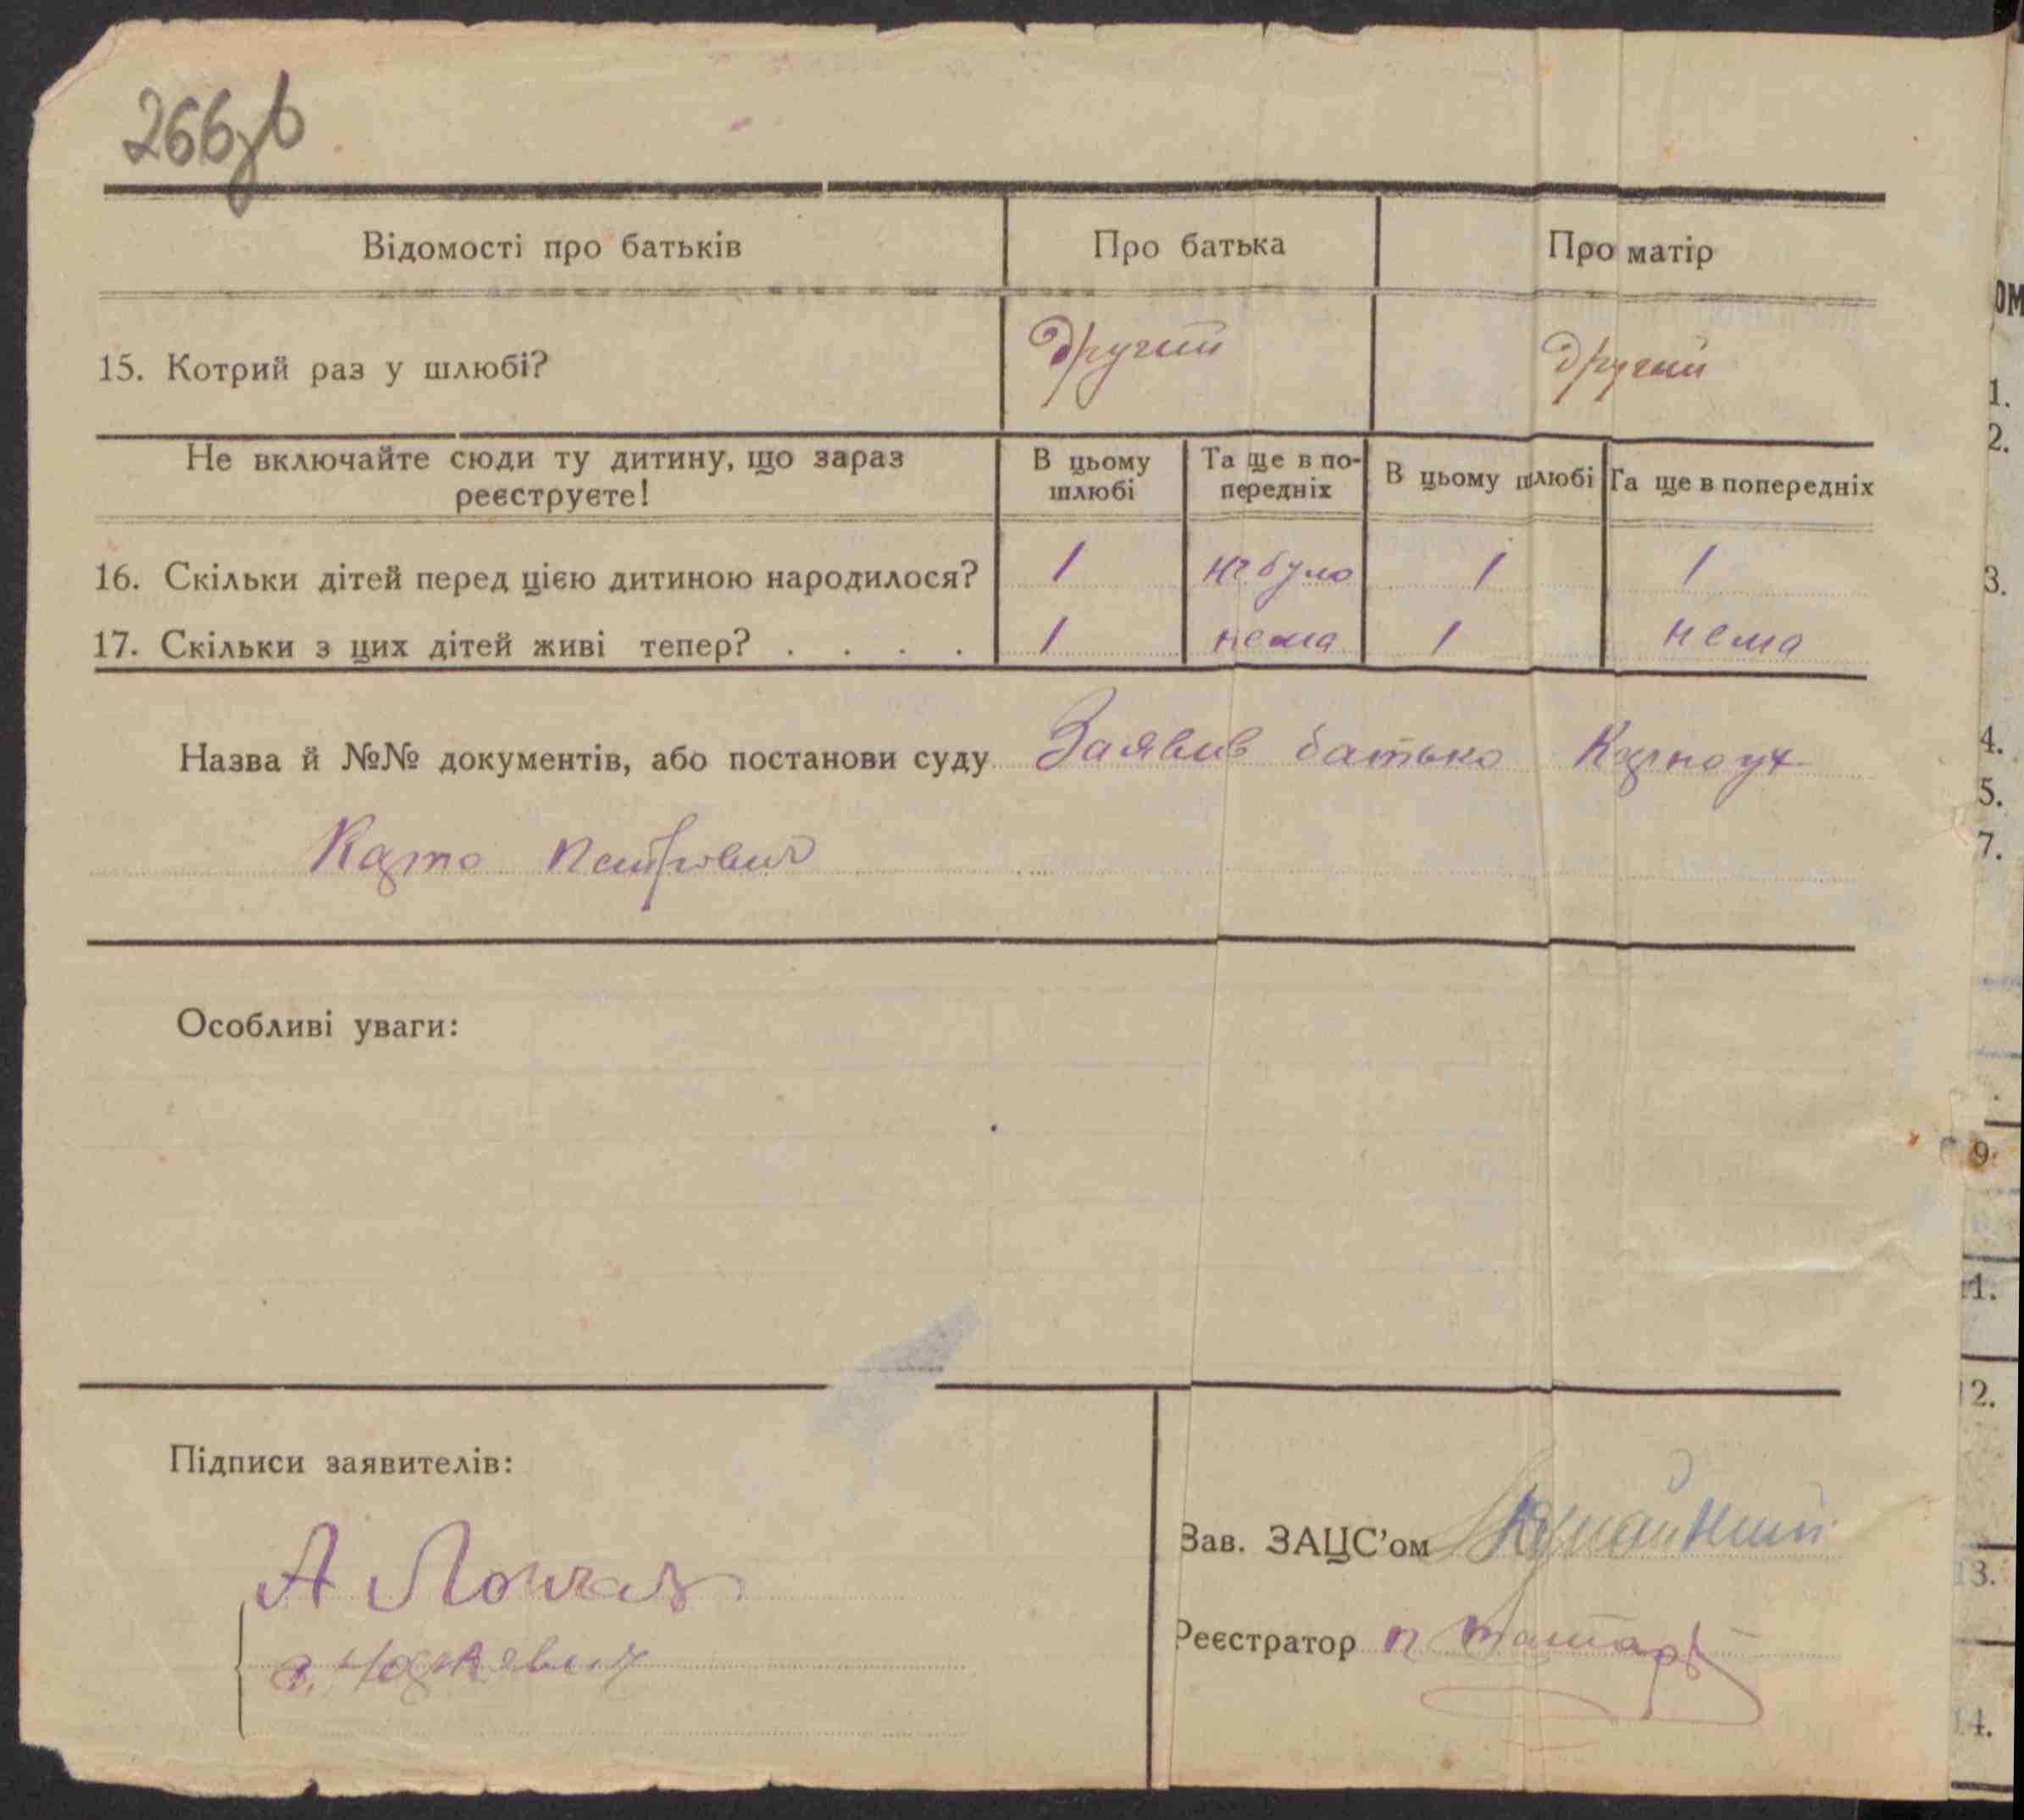 266зв
Відомості про батьків Про батька Про матір
15. Котрий раз у шлюбі? другий другий
Не включайте сюди ту дитину, що зараз реєструєте! В цьому шлюбі Та ще в по-передніх В цьому шлюбі Та ще в попередніх
16. Скільки дітей перед цією дитиною народилося? 1 не було 1 1
17. Скільки з цих дітей живі тепер? . . . . 1 нема 1 нема
Назва й №№ документів, або постанови суду Заявив батько
Петрович
Особливі уваги:
Підписи заявителів:
А
Зав. ЗАЦС’ом
Реєстратор п
ОМ
1.
2.
3.
4.
5.
7.
9.
11.
12.
13.
14.